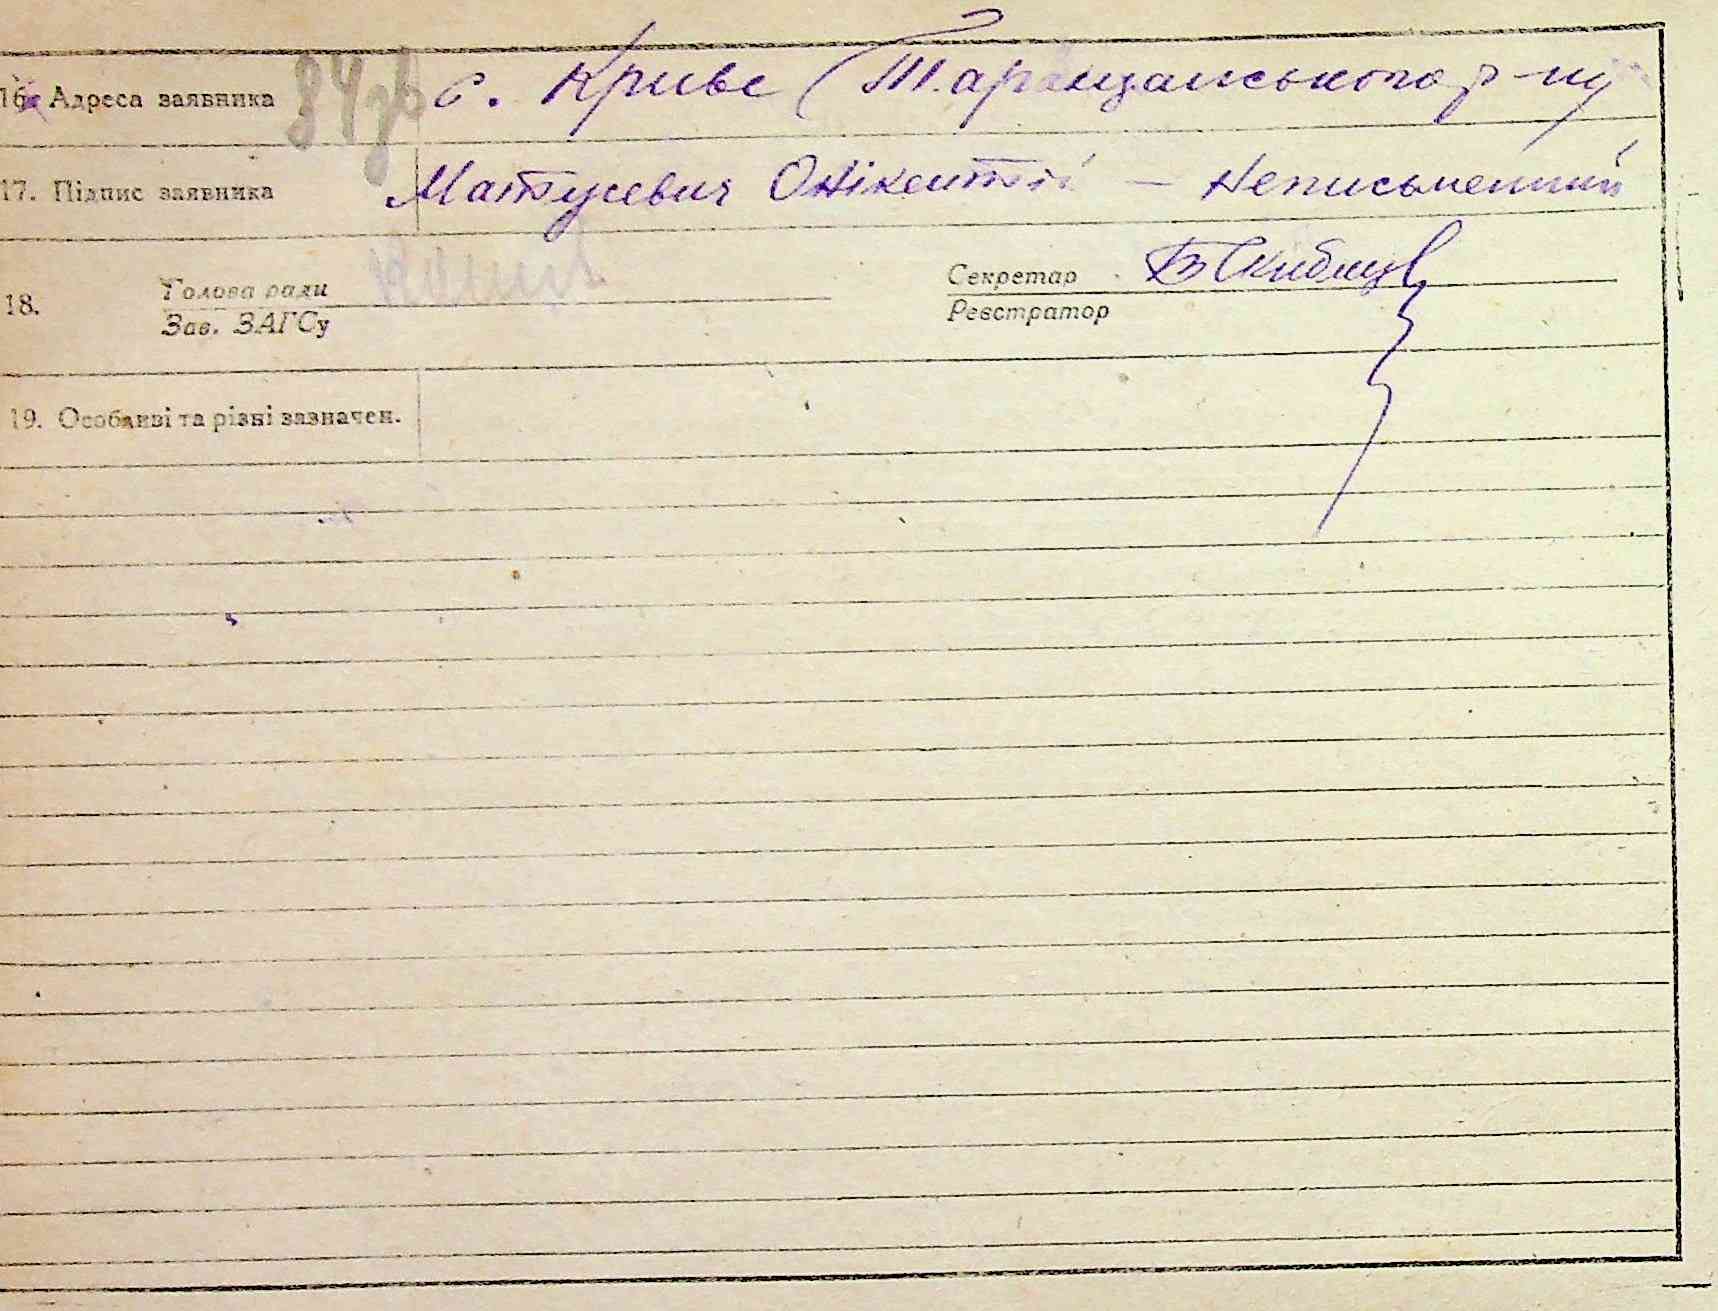 16. Адреса заявника 84 зв с. Криве (Таращанського р-ну
17. Підпис заявника Матусевич Онікентій — Неписьменний
18. Голова ради Секретар
Зав. ЗАГСу Реєстратор
19. Особливі та різні зазначен.